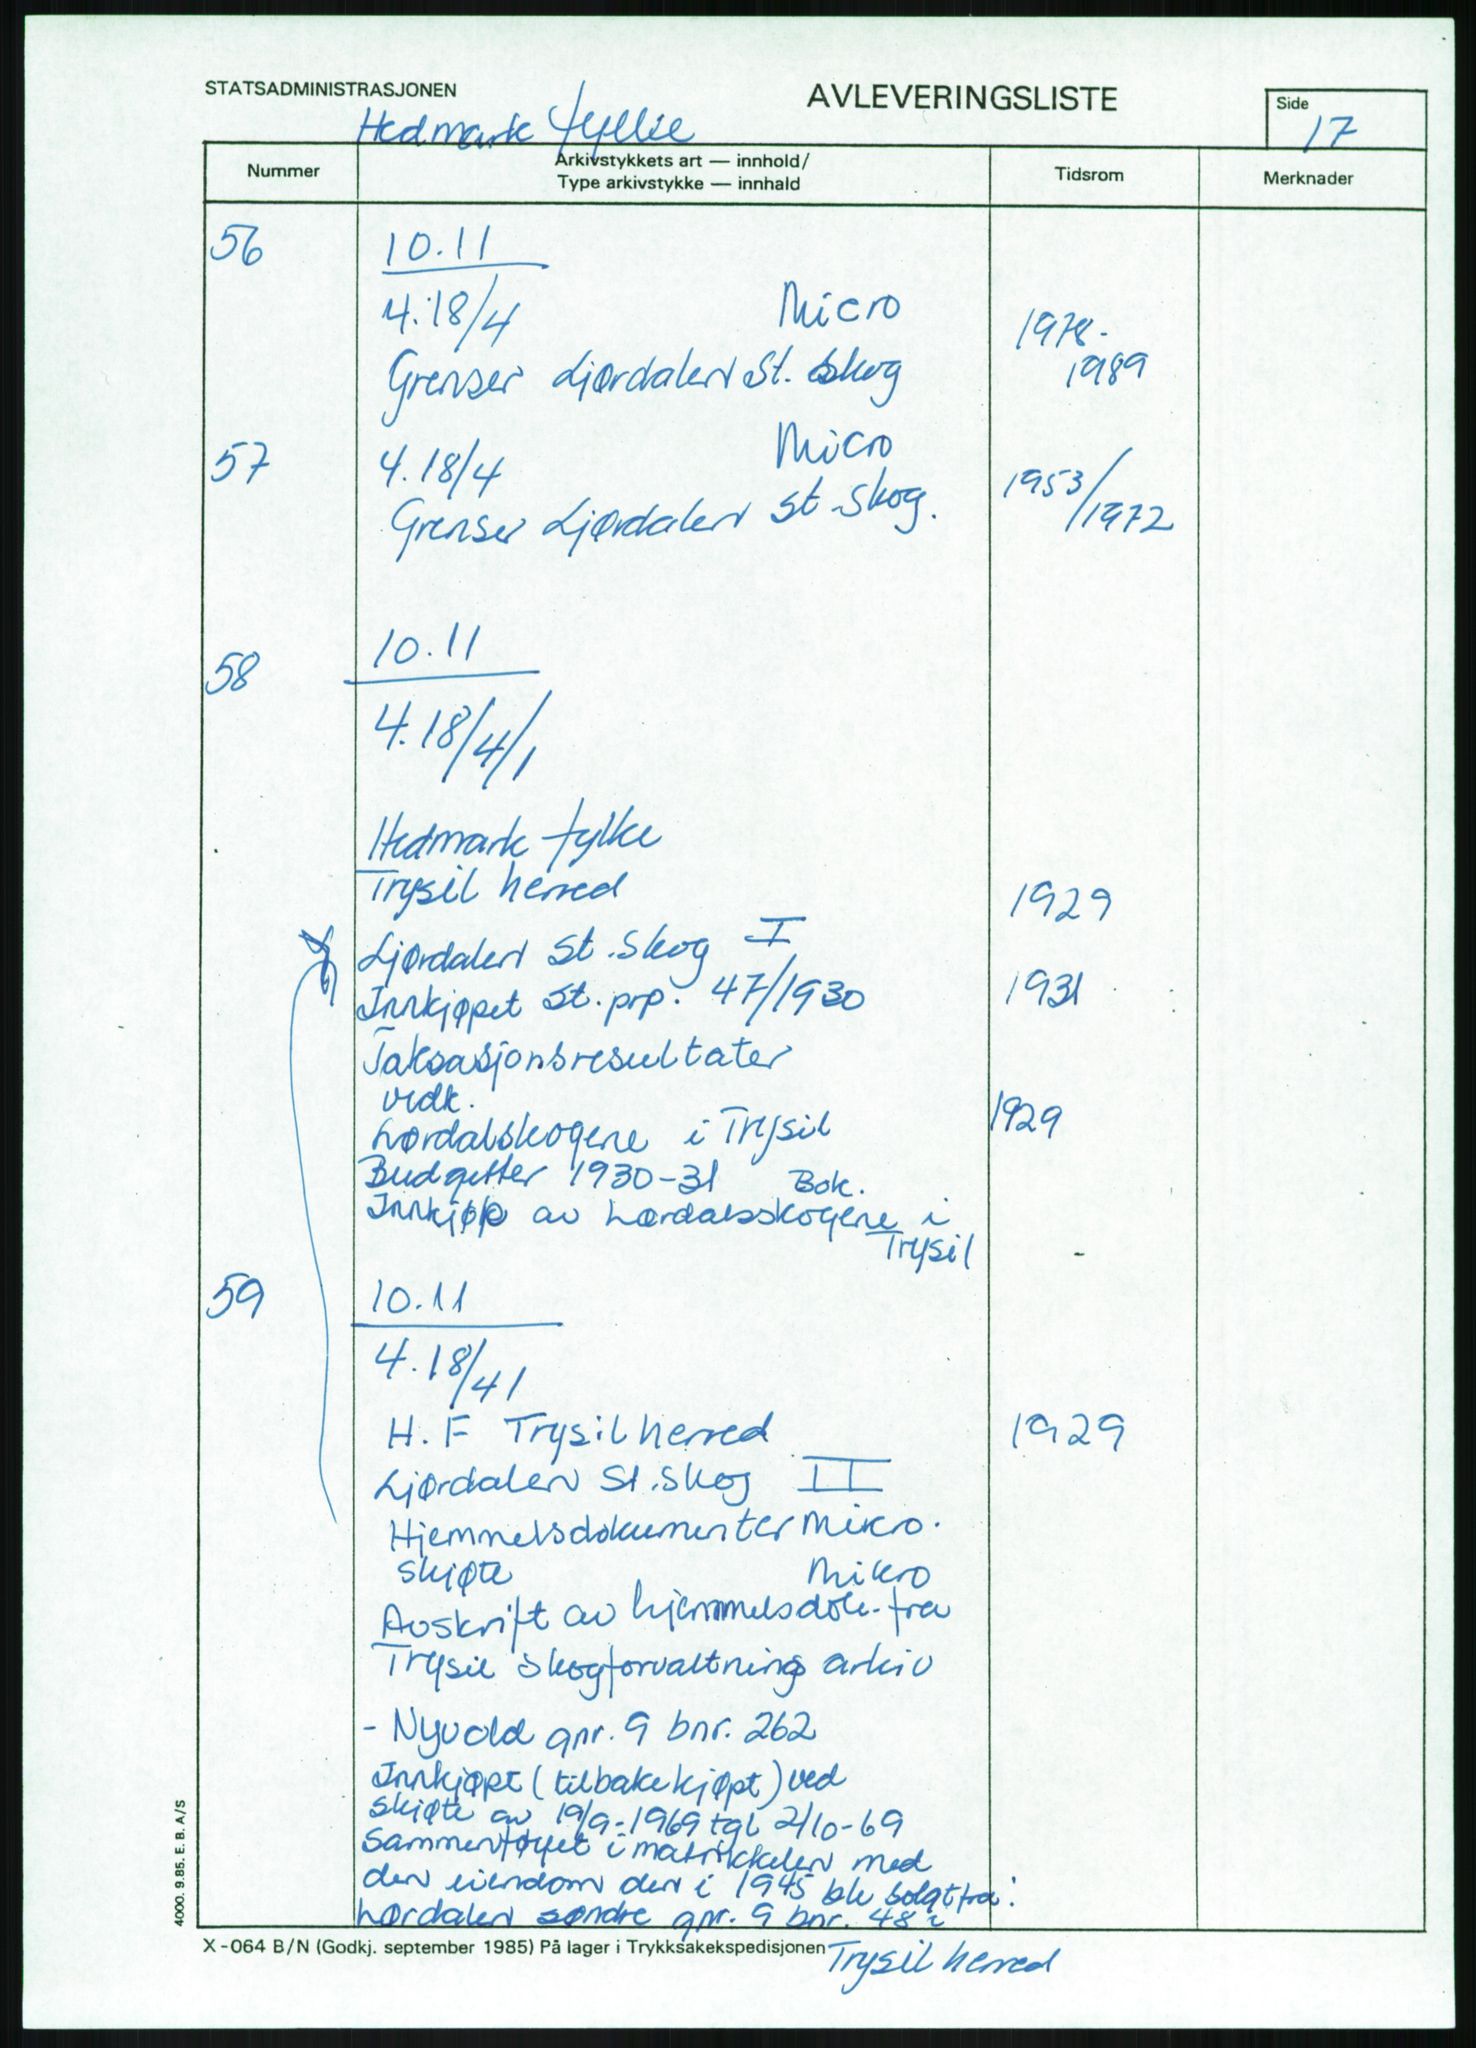 STATSADMINISTRASJONEN
AVLEVERINGSLISTE
Side
17
Hedmark fylke
Nummer
Arkivstykkets art — innhold/
Type arkivstykke — innhald
Tidsrom
Merknader
56
10.11
4.18/4 Micro
1978-
Grenser Ljørdalen St. skog
1989
57
4.18/4 Micro
1953/
Grenser Ljørdalen St. skog.
1972
58
10.11
4.18/4/1
Hedmark fylke
Trysil herred
1929
Ljørdalen St. skog I
Innkjøpet St. prp. 47/1930
1931
Taksasjonsresultater
vedk.
Lørdalskogene i Trysil
1929
Budgetter 1930-31 Bok.
Innkjøp av Lørdalsskogene i
Trysil
59
10.11
4.18/41
H. F Trysil herred
1929
Ljørdalen St. skog II
Hjemmelsdokumenter Mikro.
Skjøte Mikro
Avskrift av hjemmelsdok. fra
Trysil skogforvaltnings arkiv
- Nyvold gnr. 9 bnr. 262
Innkjøpt (tilbakekjøpt) ved
skjøte av 19/9-1969 tgl 2/10-69
Sammenføyet i matrikkelen med
den eiendom den i 1945 ble solgt fra:
Lørdalen søndre gnr. 9 bnr. 48 i
Trysil herred
X-064 B/N (Godkj. september 1985) På lager i Trykksakekspedisjonen
4000. 9.85. E. B. A/S